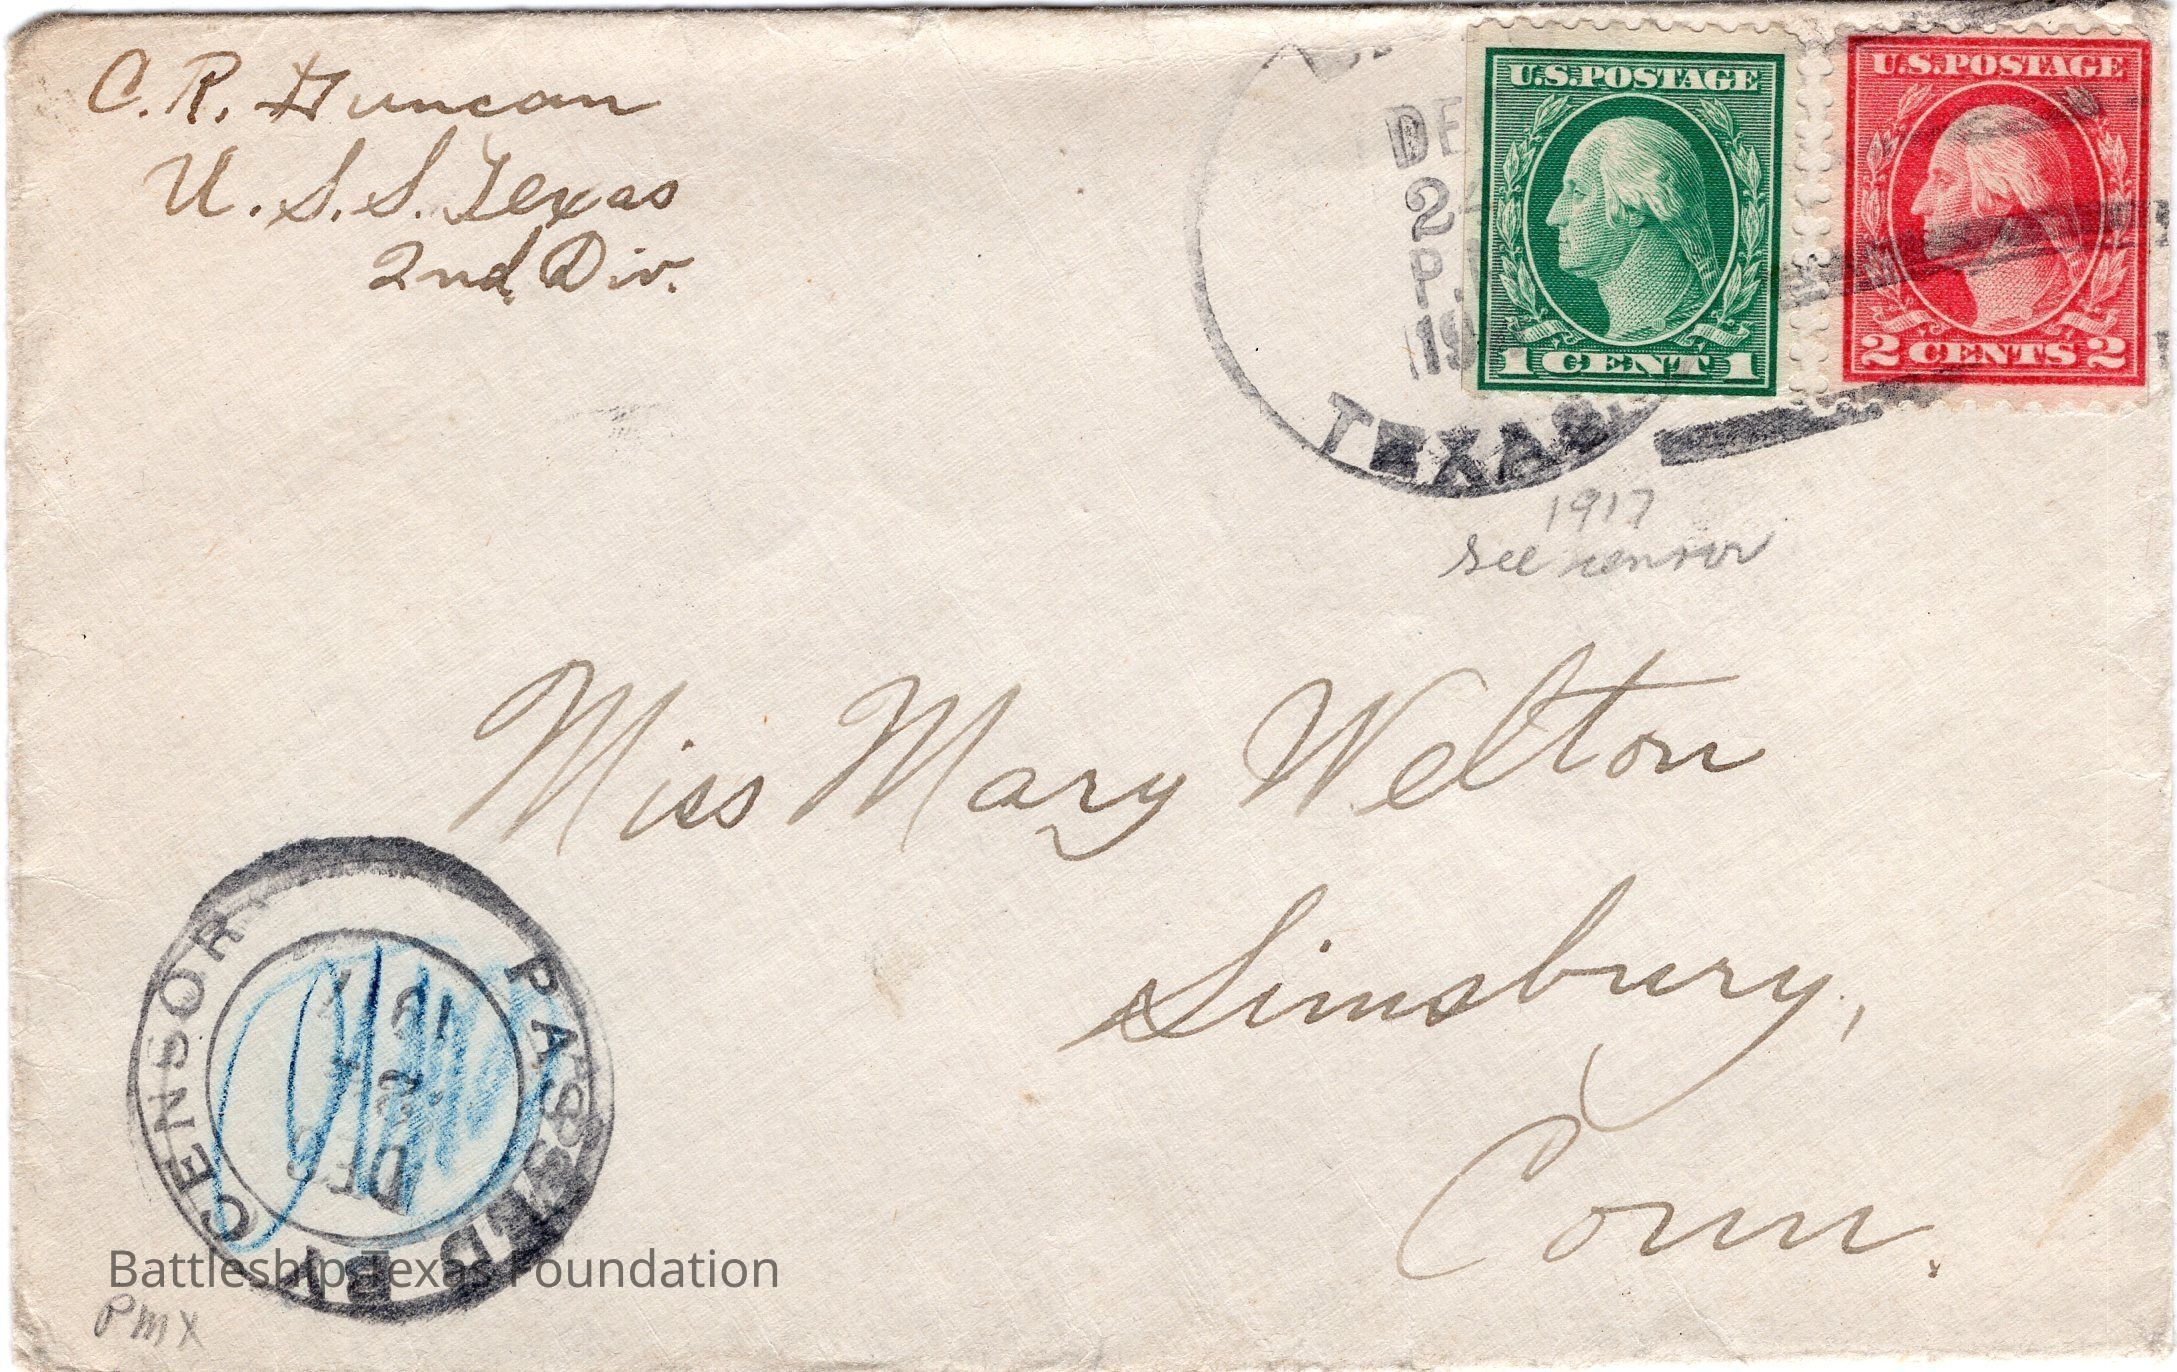 C. R. Duncan
U. S. S. Texas
2nd Div.
U.S. POSTAGE
1 CENT 1
U.S. POSTAGE
2 CENTS 2
P.
19
TEXAS.
1917
see censor
Miss Mary Welton
Simsbury,
Conn.
PASSED BY CENSOR
DEC
19
Battleship Texas Foundation
PMX